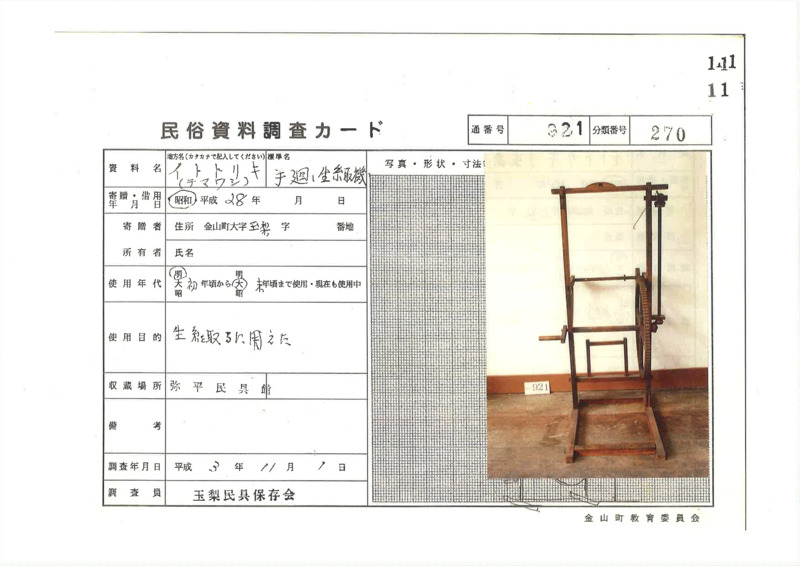 1411
11
民俗資料調査カード
通番号 921 分類番号 270
資料名 地方名(カタカナで記入してください) 標準名
イトトリキ
(テマワシ) 手廻し生糸取機
写真・形状・寸法
寄贈・借用年月日 昭和 平成 28年 月 日
寄贈者 住所 金山町大字玉梨字 番地
所有者 氏名
使用年代 明大昭 初年頃から 明大昭 末年頃まで使用・現在も使用中
使用目的 生糸を取るに用えた
収蔵場所 弥平民具館
備考
調査年月日 平成 3年 11月 1日
調査員 玉梨民具保存会
921
金山町教育委員会